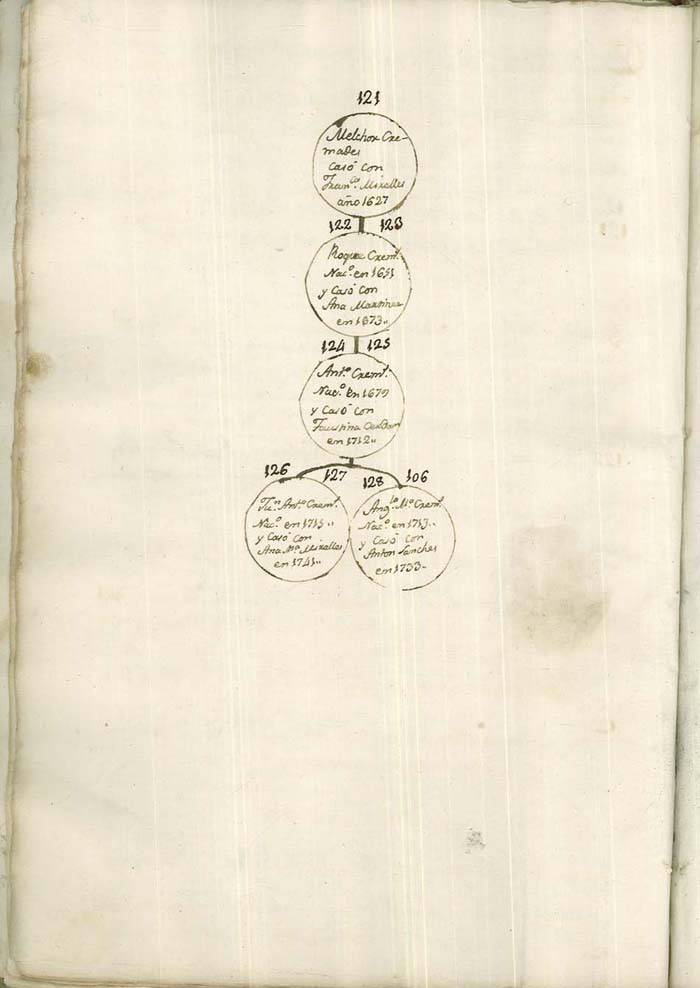 121
Melchor Cre-
mades
Casó con
Fran.ca Miralles
año 1627
122 123
Roque Crem.s
Nac.o en 1651
y Casó con
Ana Martinez
en 1673..
124 125
Ant.o Crem.s
Nac.o en 1679
y Casó con
Faustina Cerdan
en 1712..
126 127 128 106
Ju.n Ant.o Crem.s
Nac.o en 1715..
y Casó con
Ana M.a Miralles
en 1741..
Ang.la M.a Crem.s
Nac.o en 1713..
y Casó con
Anton Sanches
en 1733..